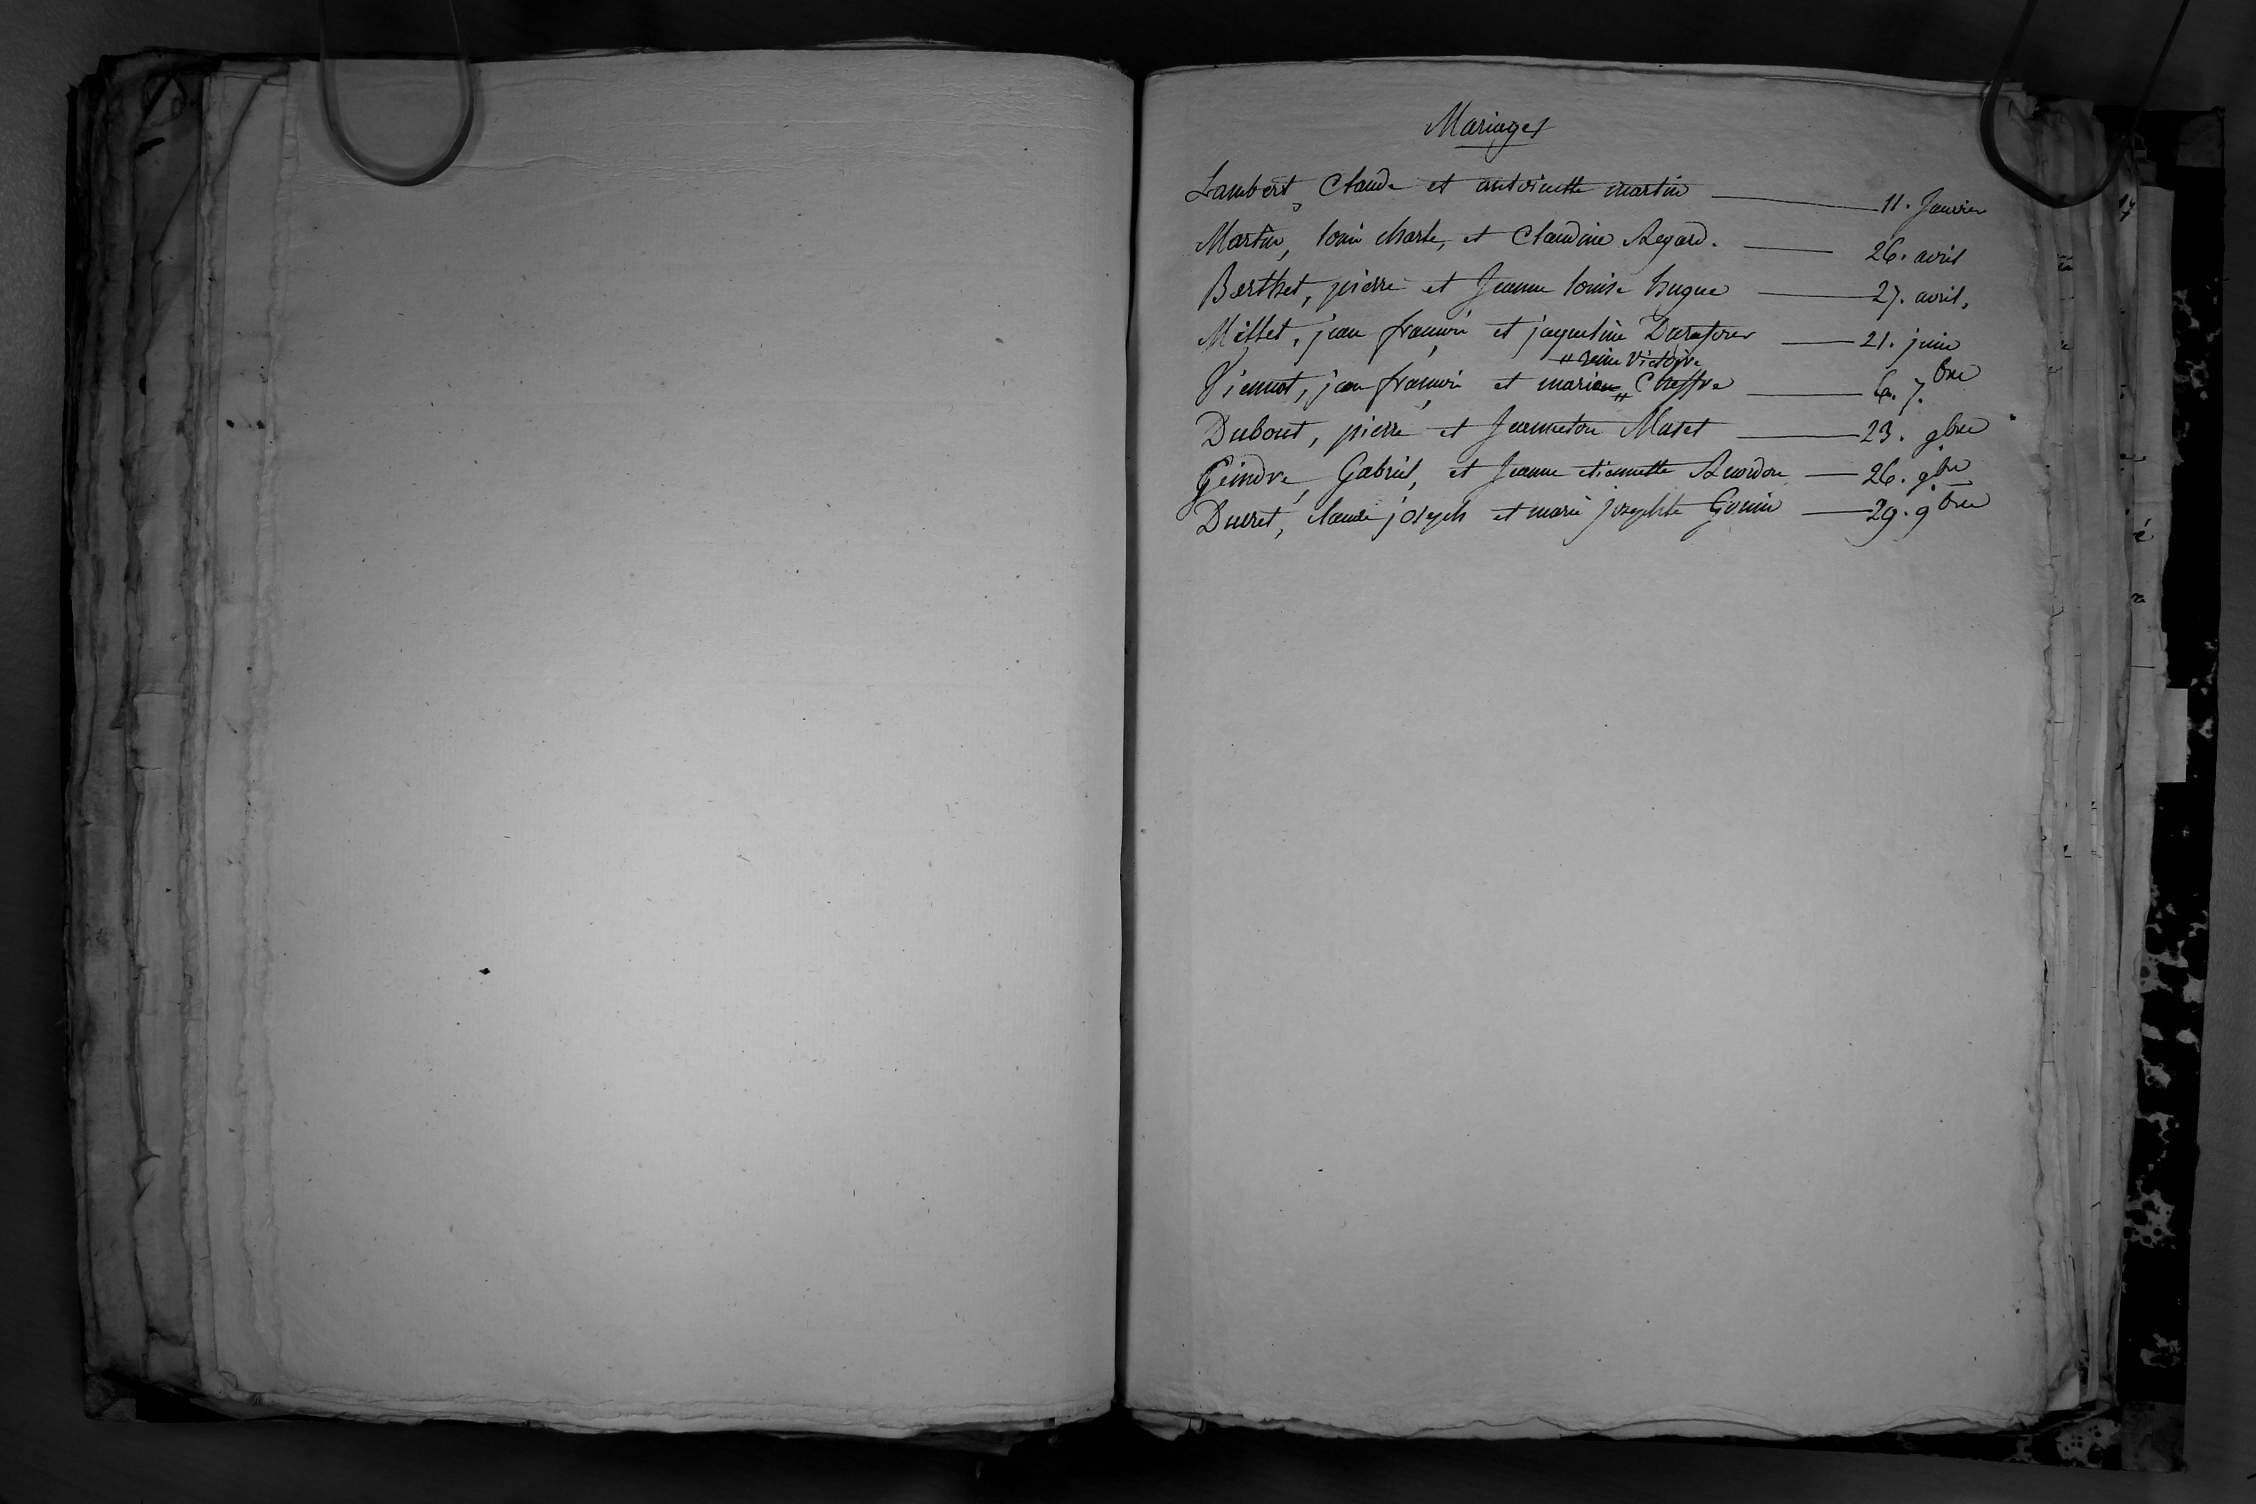 Mariages
Lambert, Claude et antoinette martin — 11. Janvier
Martin, louis charle, et Claudine Regard. — 26. avril
Berthet, pierre et Jeanne louise hugue — 27. avril.
Millet, jean françois et jaqueline Durafour — 21. juin
" reine Victoire
Viennot, jean françois et marie " Cheffre — 6. 7.bre
Dubout, pierre et Jeanneton Maset — 23. 9bre
Geindre, Gabriel, et Jeanne etiennette Reordon — 26. 9bre
Duret, claude joseph et marie josephte Gonin — 29. 9bre